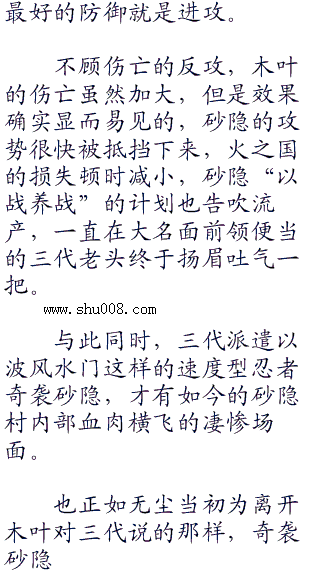 最好的防御就是进攻。
不顾伤亡的反攻，木叶
的伤亡虽然加大，但是效果
确实显而易见的，砂隐的攻
势很快被抵挡下来，火之国
的损失顿时减小，砂隐“以
战养战”的计划也告吹流
产，一直在大名面前领便当
的三代老头终于扬眉吐气一
把。
www.shu008.com
与此同时，三代派遣以
波风水门这样的速度型忍者
奇袭砂隐，才有如今的砂隐
村内部血肉横飞的凄惨场
面。
也正如无尘当初为离开
木叶对三代说的那样，奇袭
砂隐